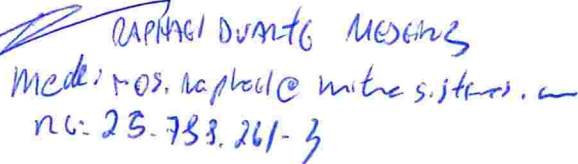 RAPHAEL DUARTE MEDEIROS
medeiros.raphael@mitresistemas.com
RG: 25.753.261-3